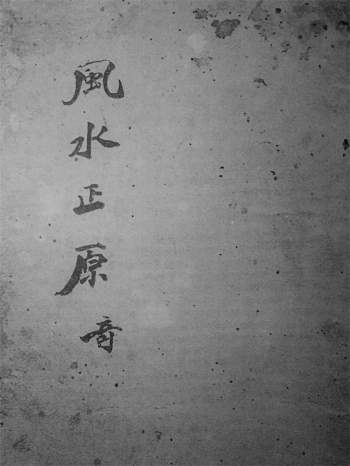 風水正原竒